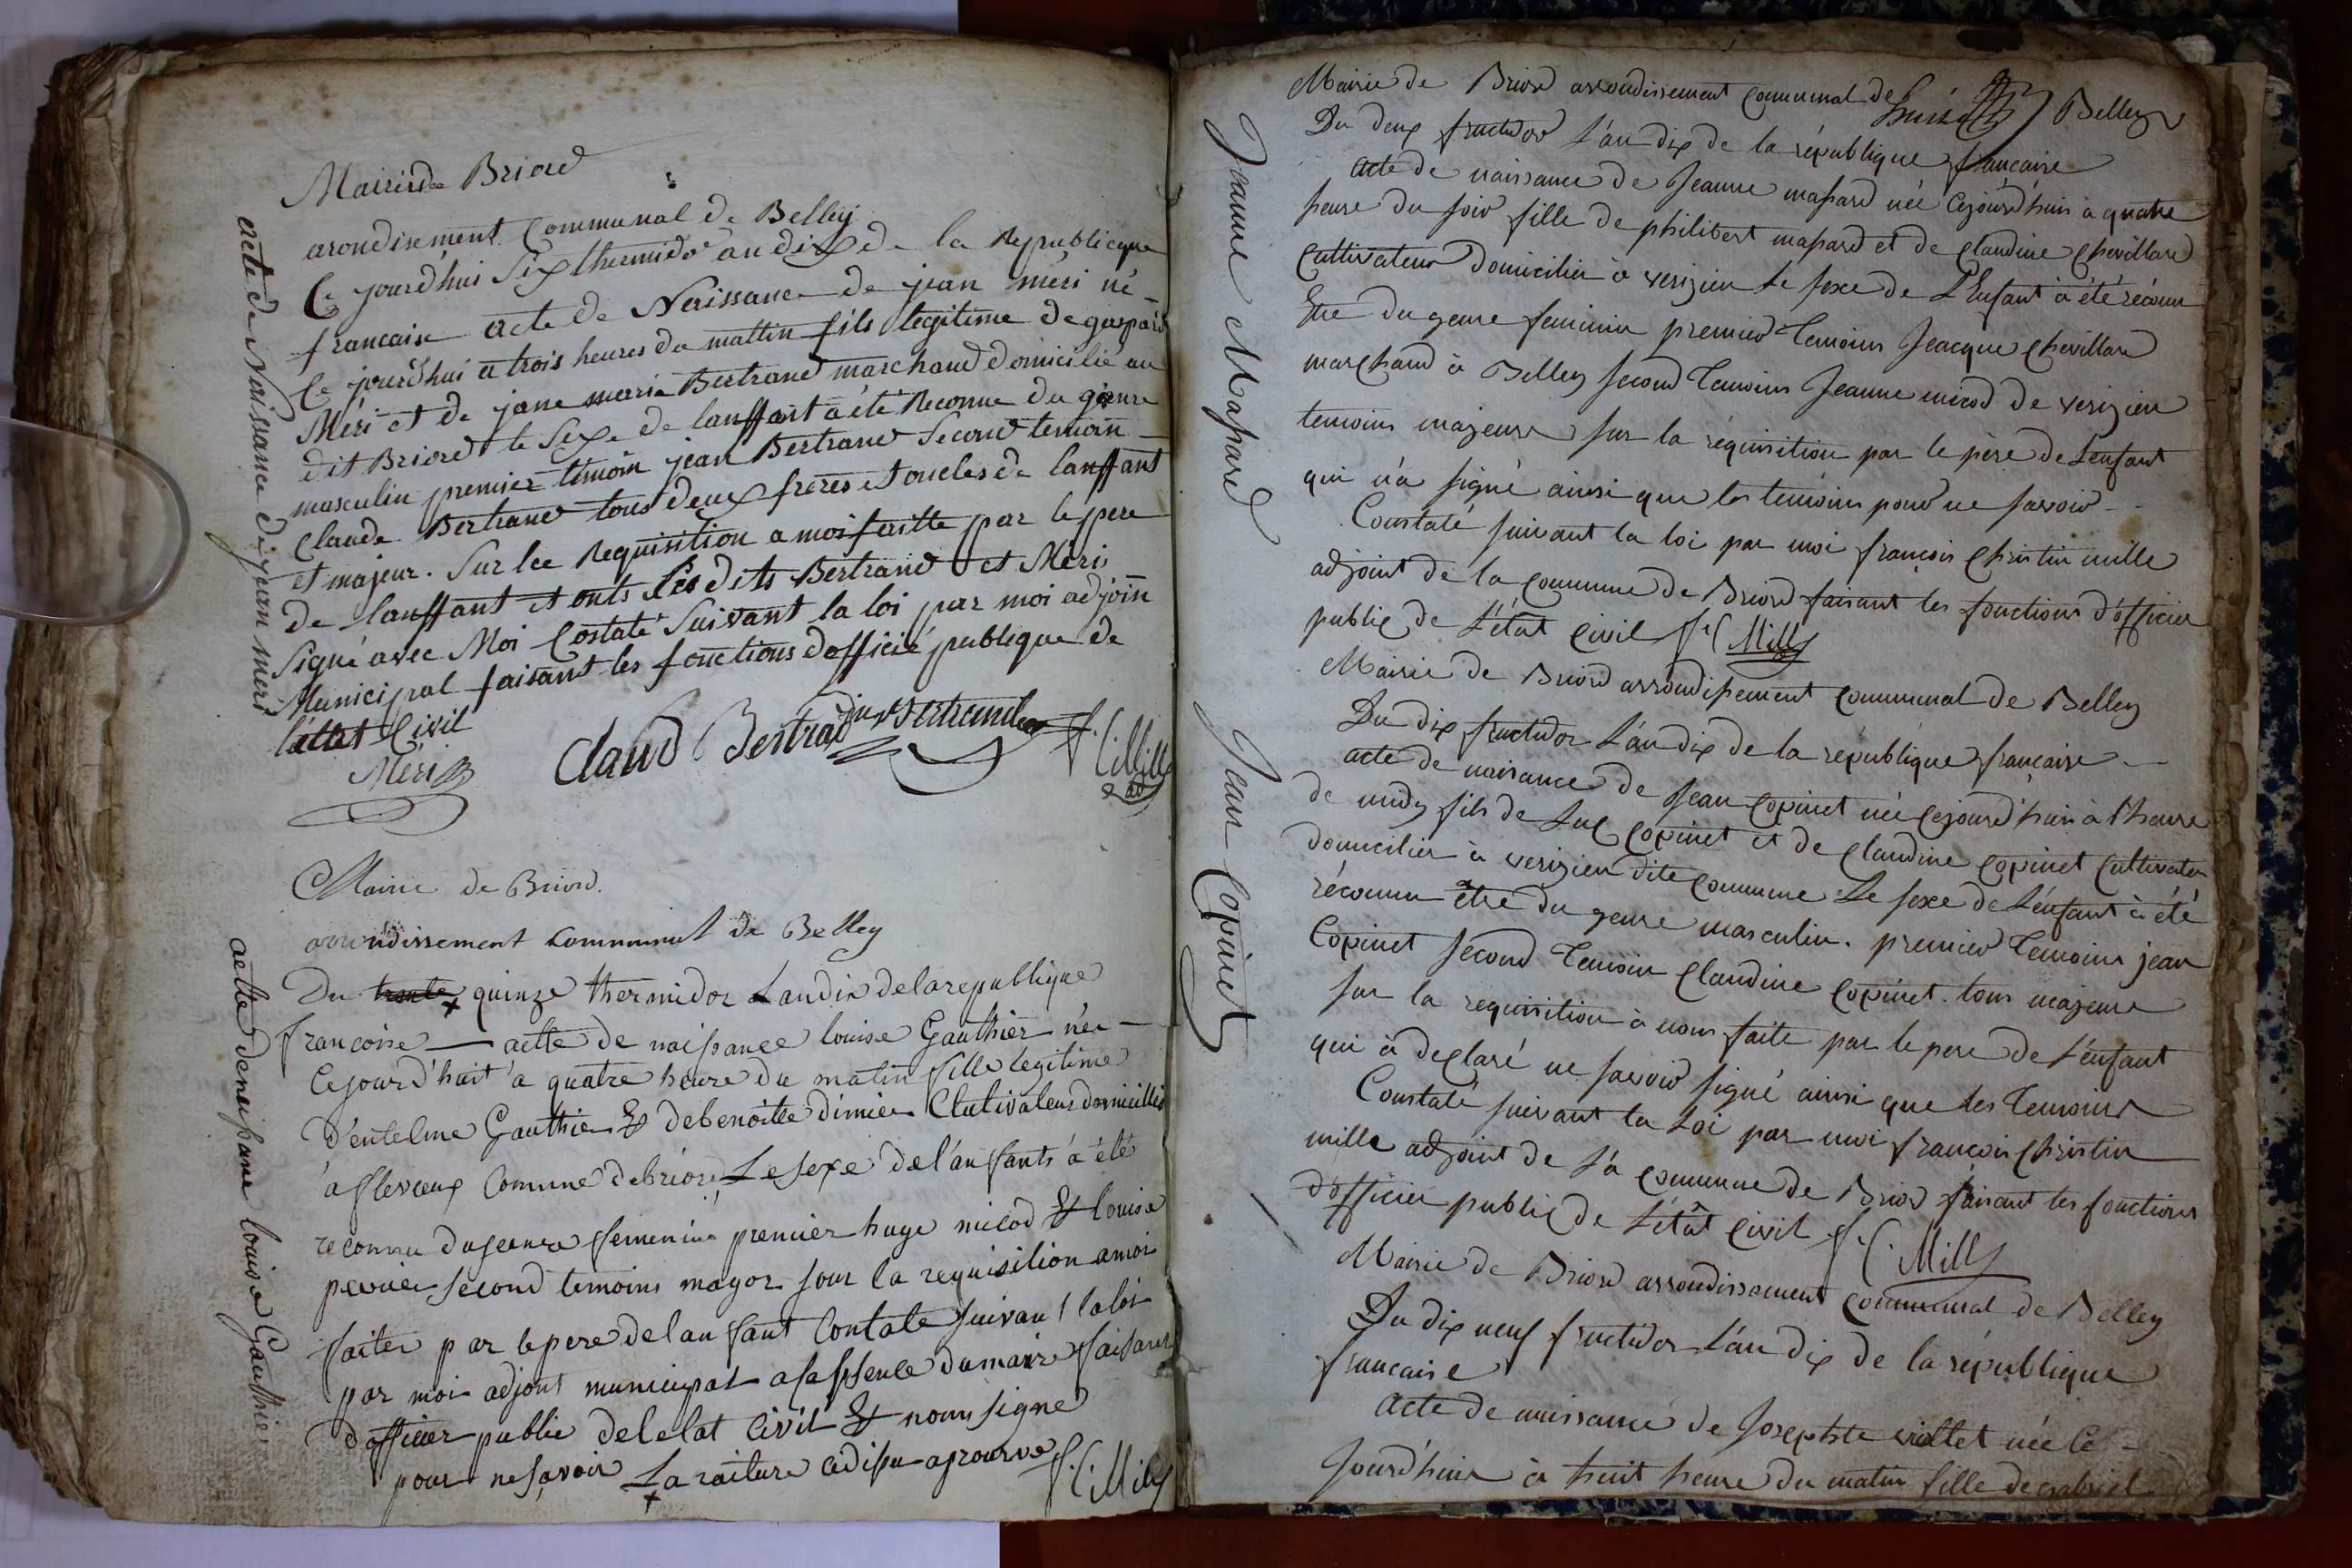 Mairie de Briord
arondisement Communal de Belley
Ce jourd'hui Six thermidor an dix de la Republicque
francaise acte de Naissance de jean méri né
Ce jourd'hui a trois heures du mattin fils legitime de gaspard
Méri et de jane marie Bertrand marchand domicilié au
dit Briord le Sexe de lanffant a été Reconnu du genre
masculin premier témoin jean Bertrand Second temoin
Claude Bertrand tous deux freres et oncles de lanffant
et majeur. Sur lee Requisition a moi faitte par le pere
de lanffant et onts les dits Bertrand et Méri
Signé avec Moi Costaté Suivant la loi par moi adjoin
Municipal faisant les fonctions d'officié publique de
l'ettat Civil
Méri
Claud Bertrad
Bertrand
f. C. Mille
adj
acte de Naissance de jean méri
Mairie de Briord.
arrondissement communal de Belley
Du trente quinze thermidor Landix de la republique
francoise — actte de naissance louise Gauthier née —
Cejourd'huit a quatre heure du matin fille legitime
D'entelme Gauthier & de benoitte dimier Clutivateur domicillié
a flevieux Comune de briord Le sexe de l'anfants a été
reconnu du genre femenine premier huge micod & louise
perrier second temoins mayor sour la requisition amoi
faiter par le pere delanfant Contaté suivant la loi
par moi adjont municipal a la pssence du maire faisant
d'officier public de l'etat Civil & nom signé
pour ne savoir La raiture cidisu aprouvé f. C. Mille
acte de naissance louise Gauthier
Mairie de Briord arrondissement communal de Belley
Du deux fructidor L'an dix de la république française
acte de naissance de Jeanne massard née Cejourd'huis à quatre
heure du soir fille de philibert massard et de claudine chevillard
Cultivateur domicilier à verizieu Le sexe de L'Enfant à été réconu
Etre du genre feminin premier Temoins Jeacque chevillard
marchand à Belley second Temoins Jeanne micod de verizieu
temoins majeurs sur la réquisition par le père de L'enfant
qui n'a signé ainsi que les temoins pour ne savoir
Constaté suivant la loi par moi françois christin mille
adjoint de la commune de Briord faisant les fonctions d'officier
public de L'état civil f. C. Mille
Jeanne Massard
Mairie de Briord arrondissement communal de Belley
Du dix fructidor L'an dix de la république française
acte de naissance de Jean Copinet née cejourd'huis à l'heure
de midy fils de Luc Copinet et de claudine copinet Cultivateur
domicilier à verizieu dite commune Le sexe de L'enfant à été
réconnu être du genre masculin. premier Temoins jean
Copinet second Temoin Claudine Copinet tous majeurs
sur la requisition à nous faite par le pere de L'enfant
qui à declaré ne savoir signé ainsi que les Temoins
Constaté suivant la Loi par moi françois christin
mille adjoint de la commune de Briord faisant les fonctions
d'officier public de L'état civil f. C. Mille
Jean Copinet
Mairie de Briord arrondissement communal de Belley
Du dix neuf fructidor L'an dix de la république
francaise
Acte de naissance de Josephte viollet née Ce
Jourd'huis à huit heure du matin fille de gabriel